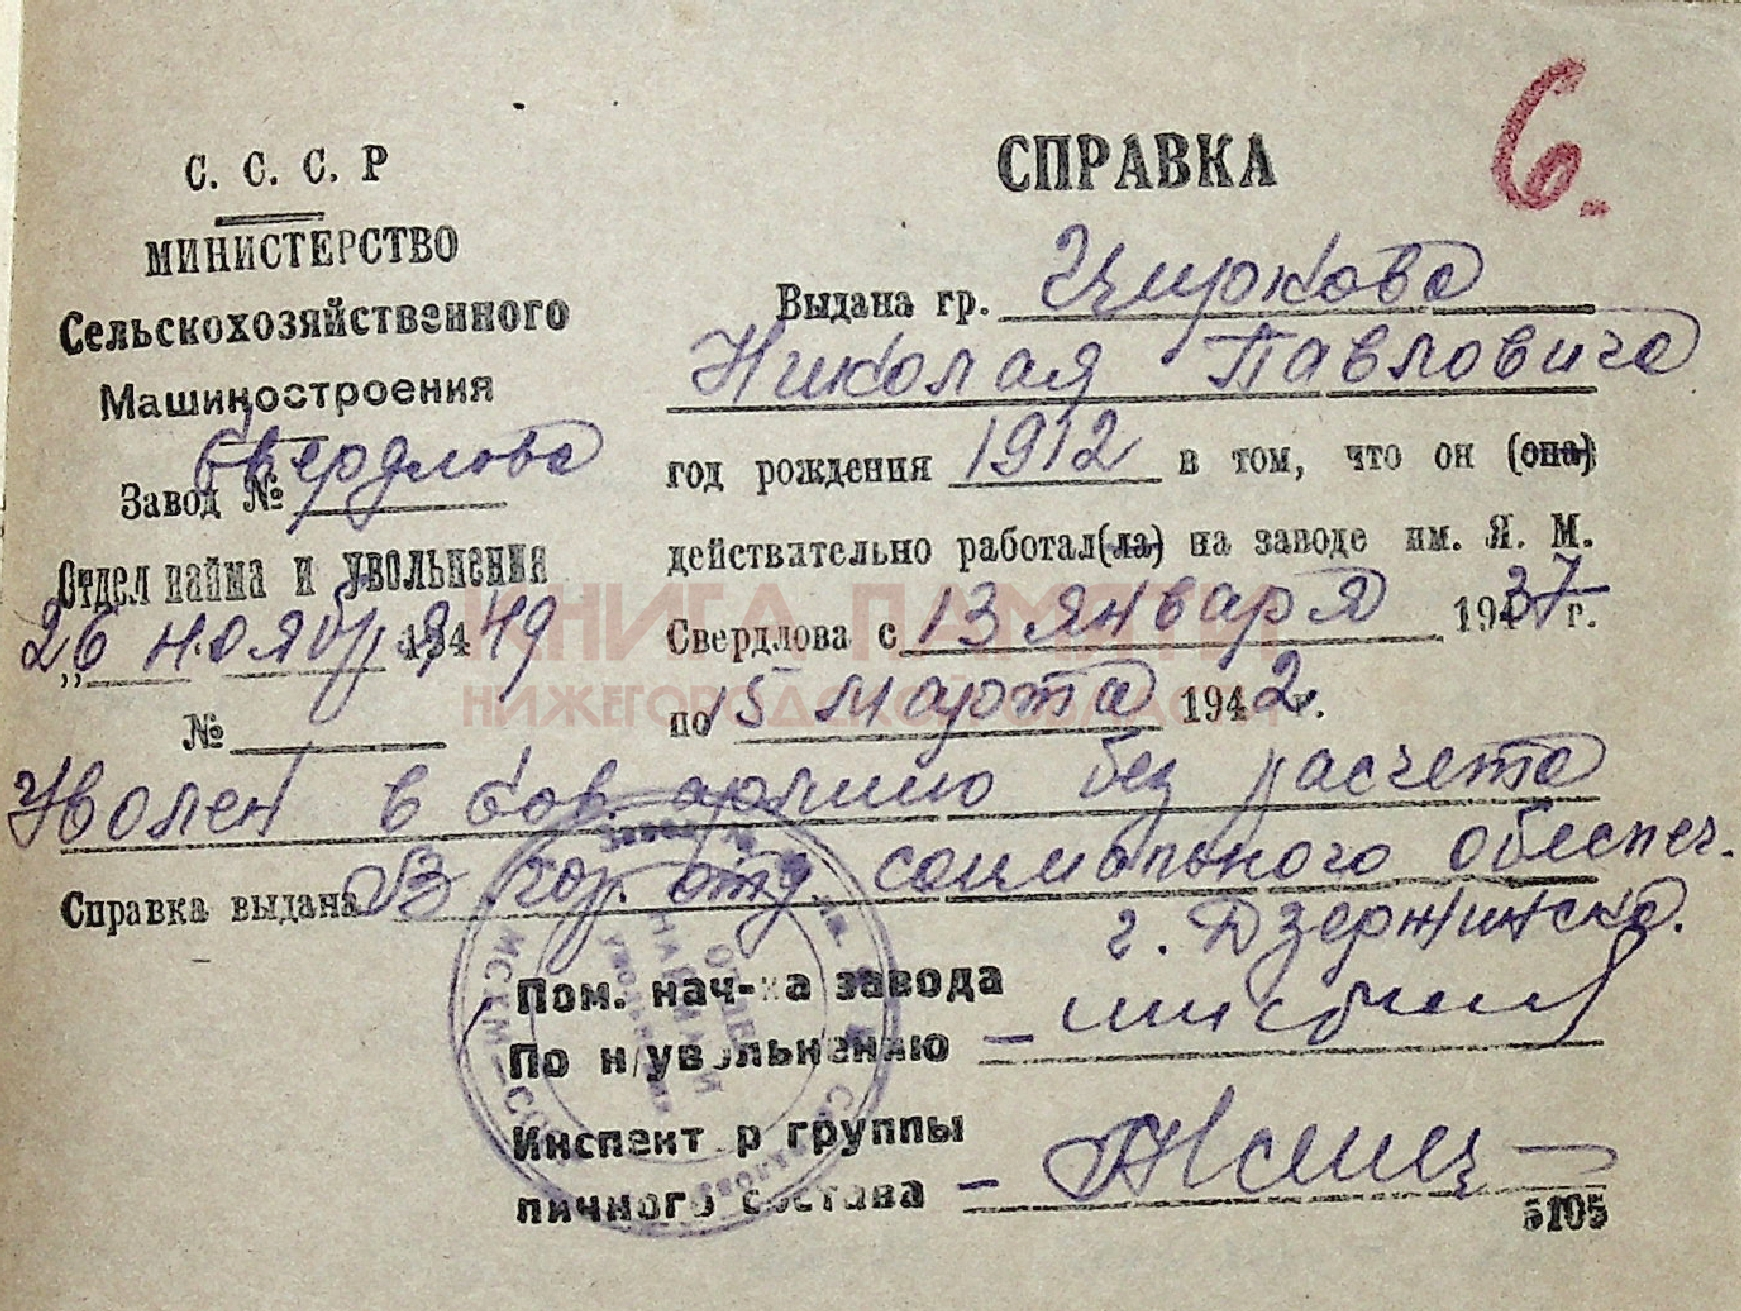 6.
С. С. С. Р
МИНИСТЕРСТВО
Сельскохозяйственного
Машиностроения
Свердлова
Завод №
Отдел найма и увольнения
„26 ноября 194 49
№
СПРАВКА
Выдана гр. Чиркова
Николая Павловича
год рождения 1912 в том, что он (она)
действительно работал(ла) на заводе им. Я. М.
Свердлова с 13 января 1937 г.
по 15 марта 1942 г.
Уволен в сов. армию без расчета
Справка выдана В гор. отд. социального обеспеч.
г. Дзержинска.
Пом. нач-ка завода
По н/увольнению
Инспект р группы
личного состава
5105
КНИГА ПАМЯТИ
НИЖЕГОРОДСКОЙ ОБЛАСТИ
ОТДЕЛ
НАЙМА И
увольнения